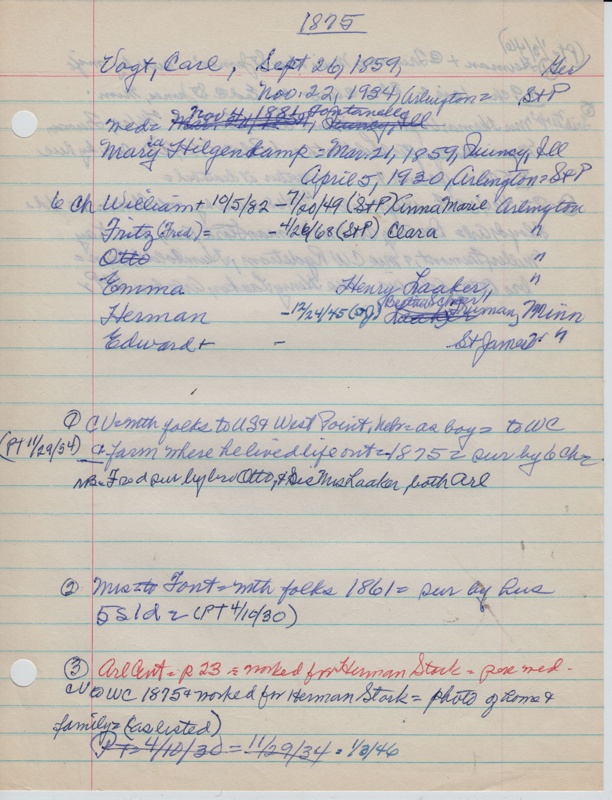 1875
Vogt, Carl, Sept 26, 1859, Ger
Nov. 22, 1934, Arlington = St P
med = Nov 4, 1881 Fontanelle Quincy, Ill
Maria Hilgenkamp = Mar. 21, 1859, Quincy, Ill
April 5, 1930, Arlington = St P
6 Ch William + 10/5/82 - 7/20/49 (St P) Anna Marie Arlington
Fritz (Fred) = - 4/26/68 (St P) Clara "
Otto "
Emma Henry Laaker, "
Herman - 12/24/45 (OJ) Laaker Truman, Minn
Edward + - St James "
① CV = with folks to US & West Point, Neb = as boy = to WC
(PT 11/29/34) & farm where he lived life out = 1875 = sur by 6 Ch =
NB = Fred sur by bro Otto, & Sis Mrs Laaker, both Arl
② Mrs to Font = with folks 1861 = sur by hus
5 s 1 d = (PT 4/10/30)
③ Arl Cent = p 23 = worked for Herman Stork = pox med.
CV to WC 1875 & worked for Herman Stork = photo of home &
family = (as listed)
PT = 4/10/30 = 11/29/34 = 1/3/46